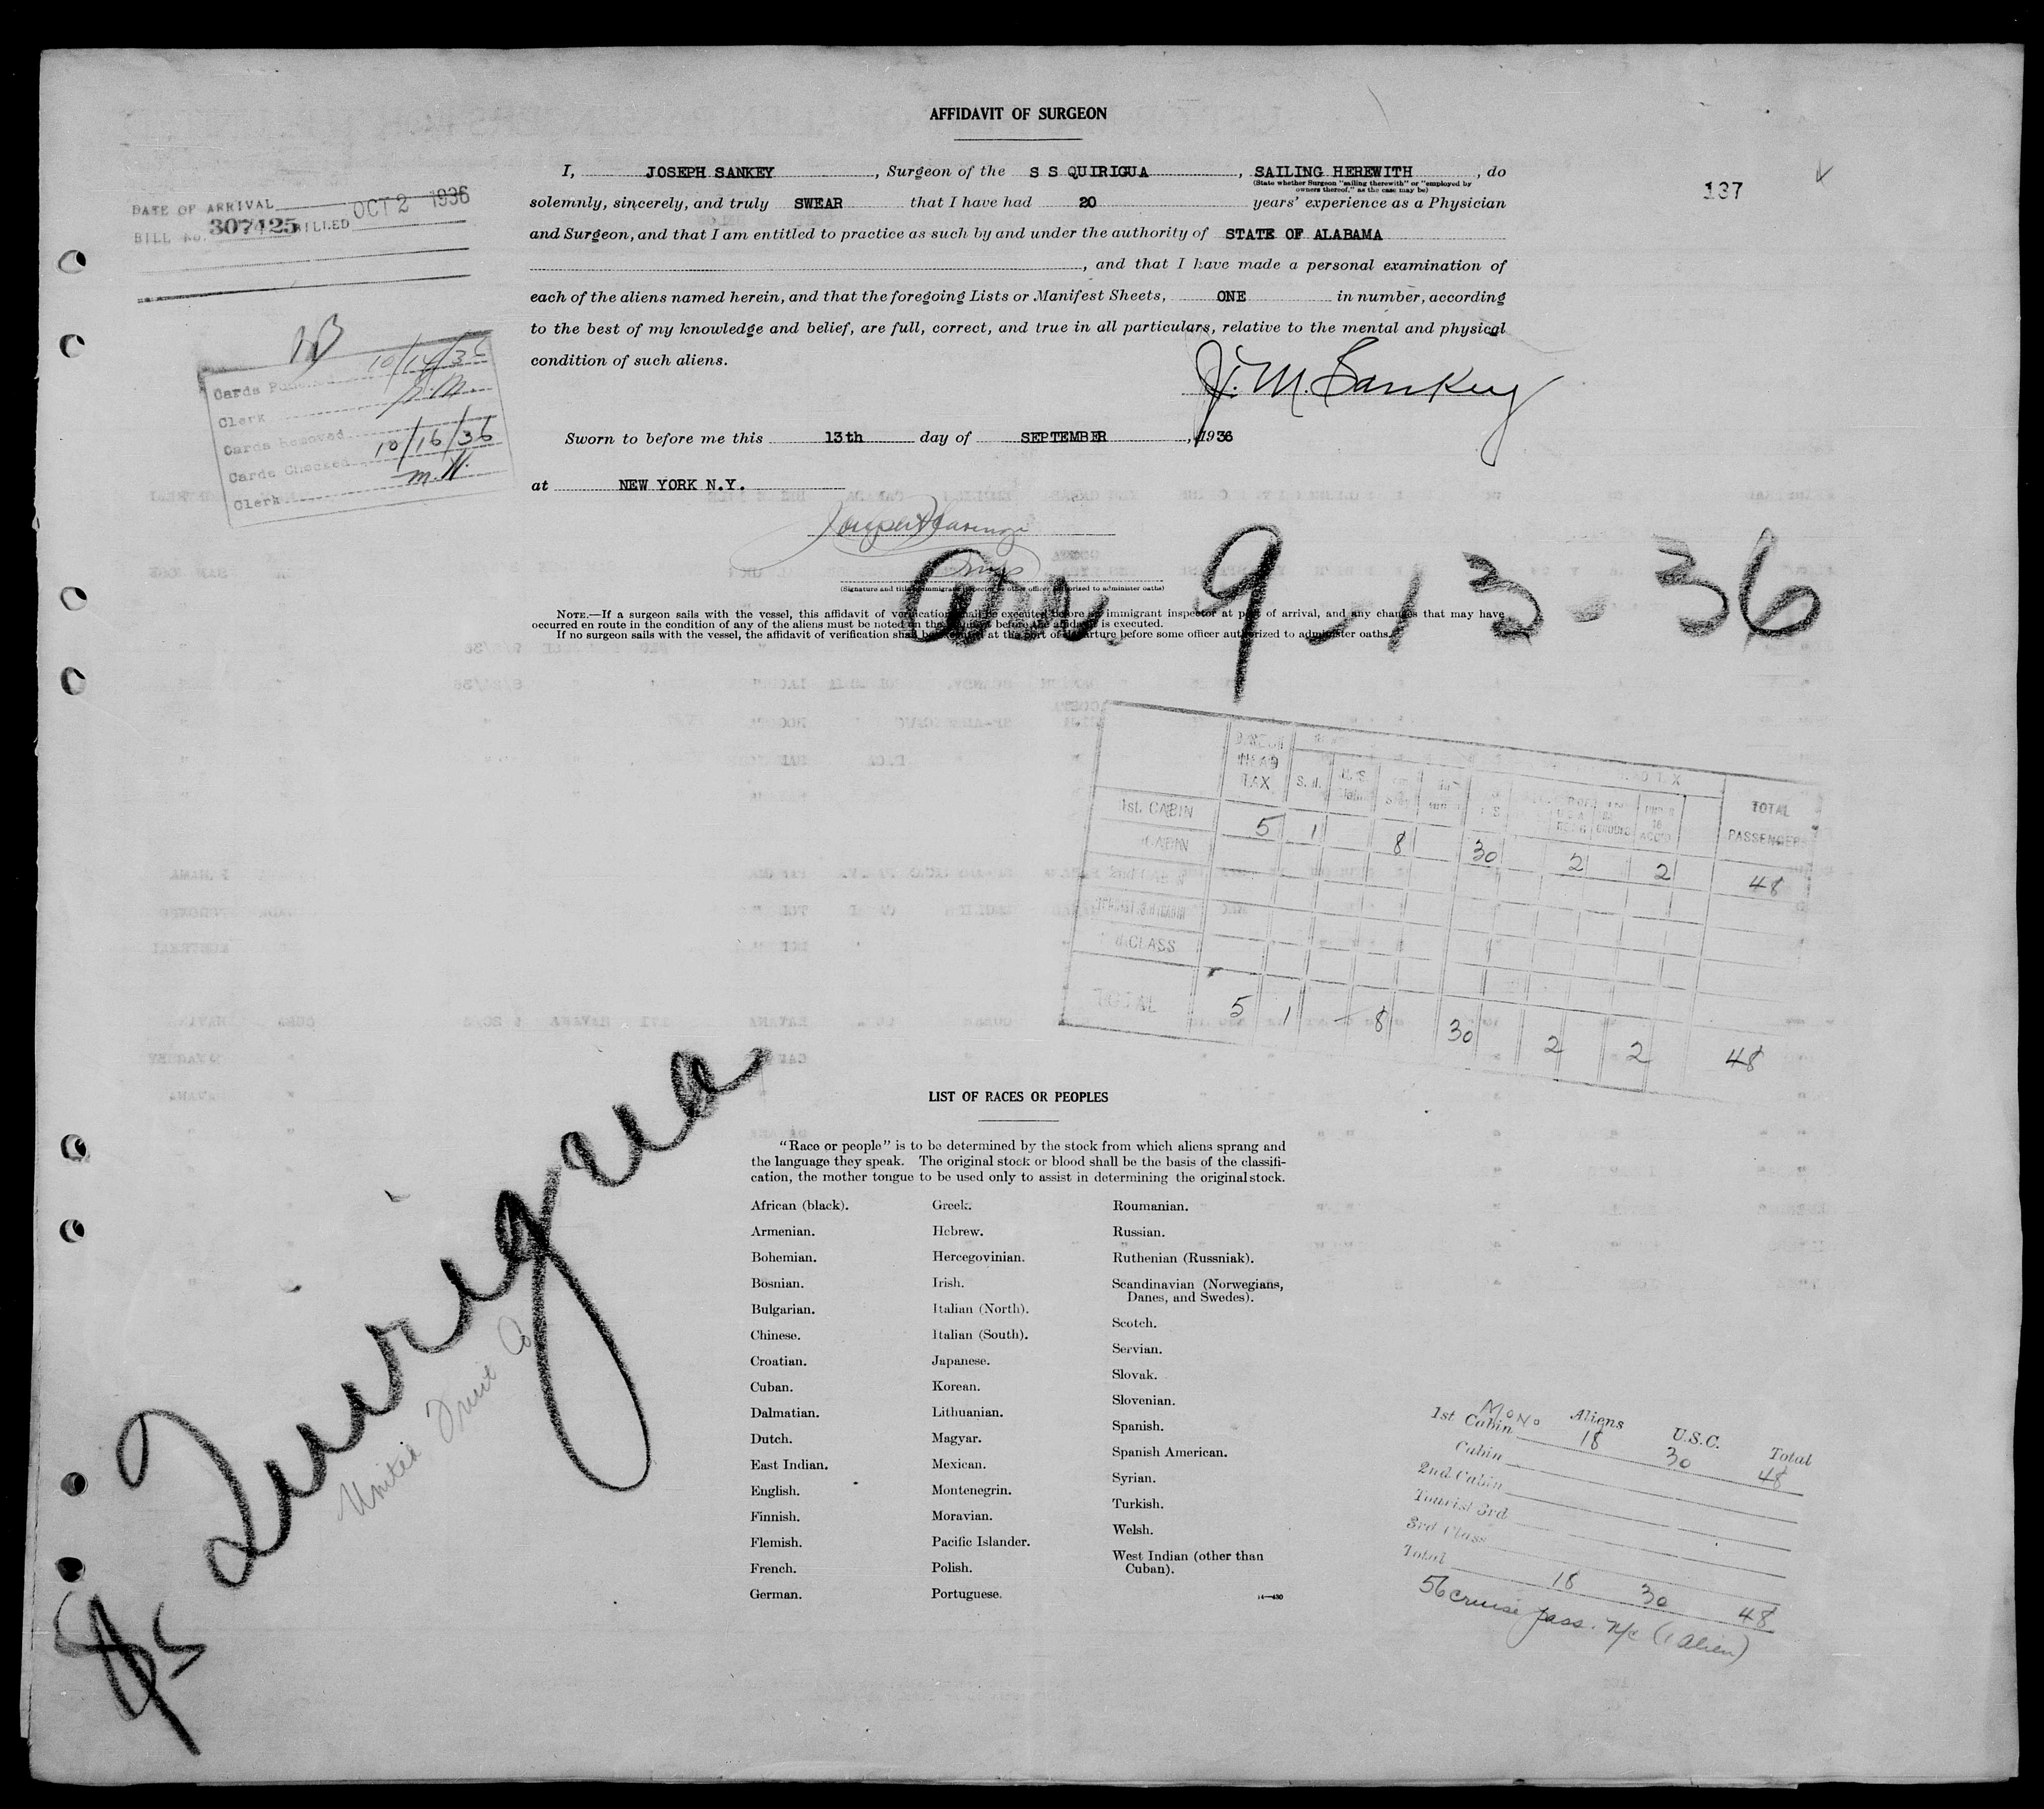 AFFIDAVIT OF SURGEON
I, JOSEPH SANKEY, Surgeon of the S S QUIRIGUA, SAILING HEREWITH, do
(State whether Surgeon "sailing therewith" or "employed by
owners thereof," as the case may be)
solemnly, sincerely, and truly SWEAR that I have had 20 years' experience as a Physician
and Surgeon, and that I am entitled to practice as such by and under the authority of STATE OF ALABAMA
, and that I have made a personal examination of
each of the aliens named herein, and that the foregoing Lists or Manifest Sheets, ONE in number, according
to the best of my knowledge and belief, are full, correct, and true in all particulars, relative to the mental and physical
condition of such aliens.
J. M. Sankey
Sworn to before me this 13th day of SEPTEMBER, 1936
at NEW YORK N.Y.
137
DATE OF ARRIVAL
BILL No. 307425 BILLED OCT 2 1936
10/14/36
Clerk
Cards Removed
Cards Checked 10/16/36
Clerk M.W.
Arr. 9-13-36
(Signature and title of immigrant inspector or other officer authorized to administer oaths)
NOTE.—If a surgeon sails with the vessel, this affidavit of verification shall be executed before an immigrant inspector at port of arrival, and any changes that may have
occurred en route in the condition of any of the aliens must be noted on the manifest before the affidavit is executed.
If no surgeon sails with the vessel, the affidavit of verification shall be executed at the port of departure before some officer authorized to administer oaths.
HEAD
TAX
S. H.
TOTAL
PASSENGERS
1st. CABIN 5 1 8 30 2 2 48
CABIN
CLASS
TOTAL 5 1 8 30 2 2 48
LIST OF RACES OR PEOPLES
"Race or people" is to be determined by the stock from which aliens sprang and
the language they speak. The original stock or blood shall be the basis of the classifi-
cation, the mother tongue to be used only to assist in determining the original stock.
African (black).
Armenian.
Bohemian.
Bosnian.
Bulgarian.
Chinese.
Croatian.
Cuban.
Dalmatian.
Dutch.
East Indian.
English.
Finnish.
Flemish.
French.
German.
Greek.
Hebrew.
Hercegovinian.
Irish.
Italian (North).
Italian (South).
Japanese.
Korean.
Lithuanian.
Magyar.
Mexican.
Montenegrin.
Moravian.
Pacific Islander.
Polish.
Portuguese.
Roumanian.
Russian.
Ruthenian (Russniak).
Scandinavian (Norwegians,
Danes, and Swedes).
Scotch.
Servian.
Slovak.
Slovenian.
Spanish.
Spanish American.
Syrian.
Turkish.
Welsh.
West Indian (other than
Cuban).
14—430
SS Quirigua
United Fruit Co
MoNo Aliens U.S.C. Total
1st Cabin 18 30 48
Cabin
2nd Cabin
Tourist 3rd
3rd Class
Total 18 30 48
56 cruise pass. N/c (1 alien)